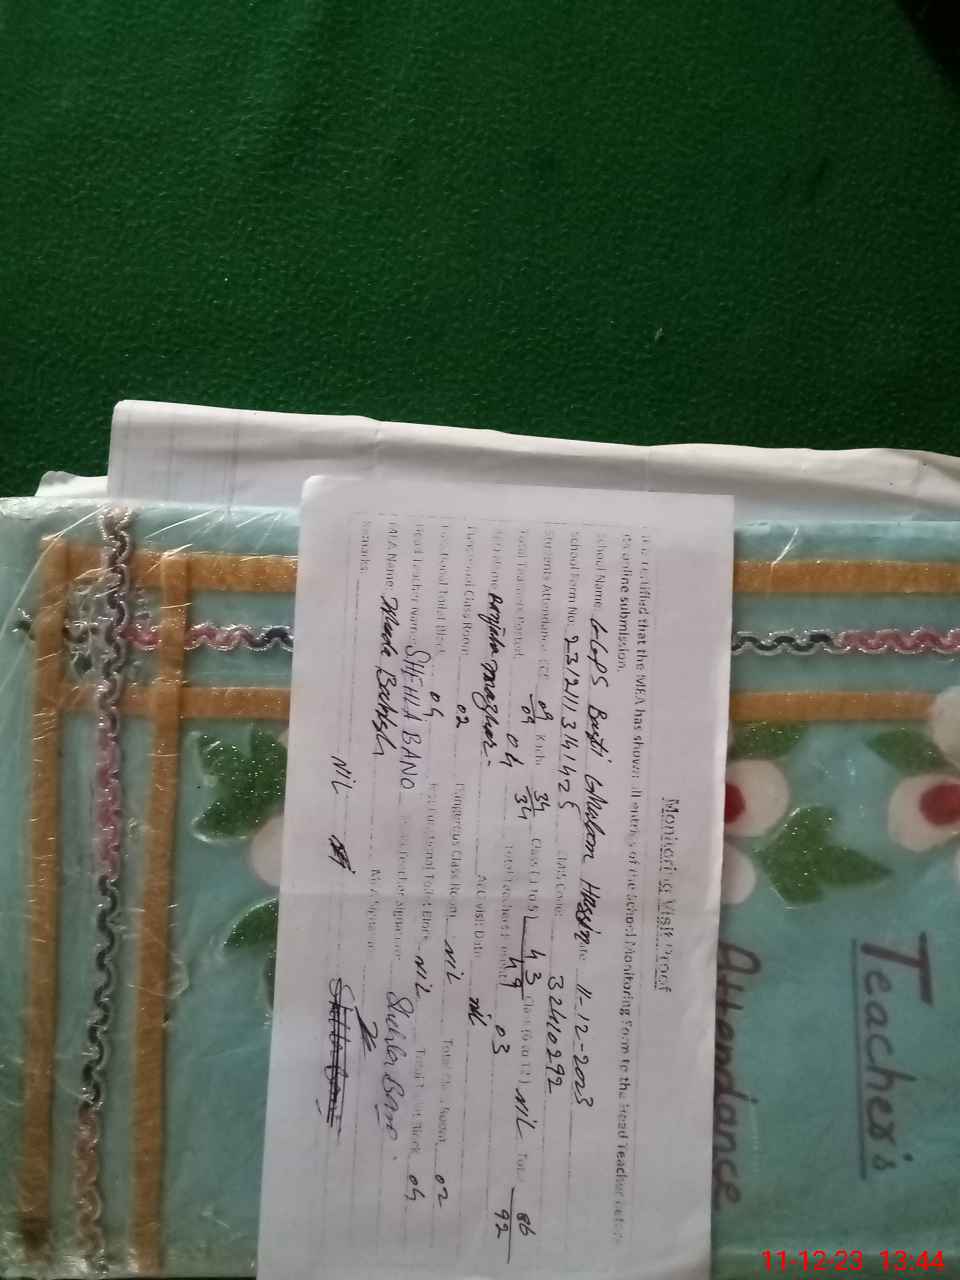 Monitoring Visit Proof
It is certified that the MEA has shown all entries of the School Monitoring Form to the Head Teacher before
its online submission.
School Name: GGPS Basti Ghulam Hassin Date 11-12-2023
School Form No. 23121113141425 EMIS Code: 32410292
Students Attendance ECE 09/09 Kachi 34/34 Class (1 to 5) 43/49 Class (6 to 12) NIL Total 86/92
Total Teachers Posted 04 Total Teachers Present 03
AEO Name AEO Visit Date nil
Functional Class Room 02 Dangerous Class Room NIL Total Class Room 02
Functional Toilet Block 04 Non Functional Toilet Block NIL Total Toilet Block 04
Head Teacher Name: SHEHLA BANO Head Teacher Signature Shehla Bano
MEA Name: Bakhsh MEA Signature
Remarks: NIL
Teacher's
Attendance
11-12-23 13:44